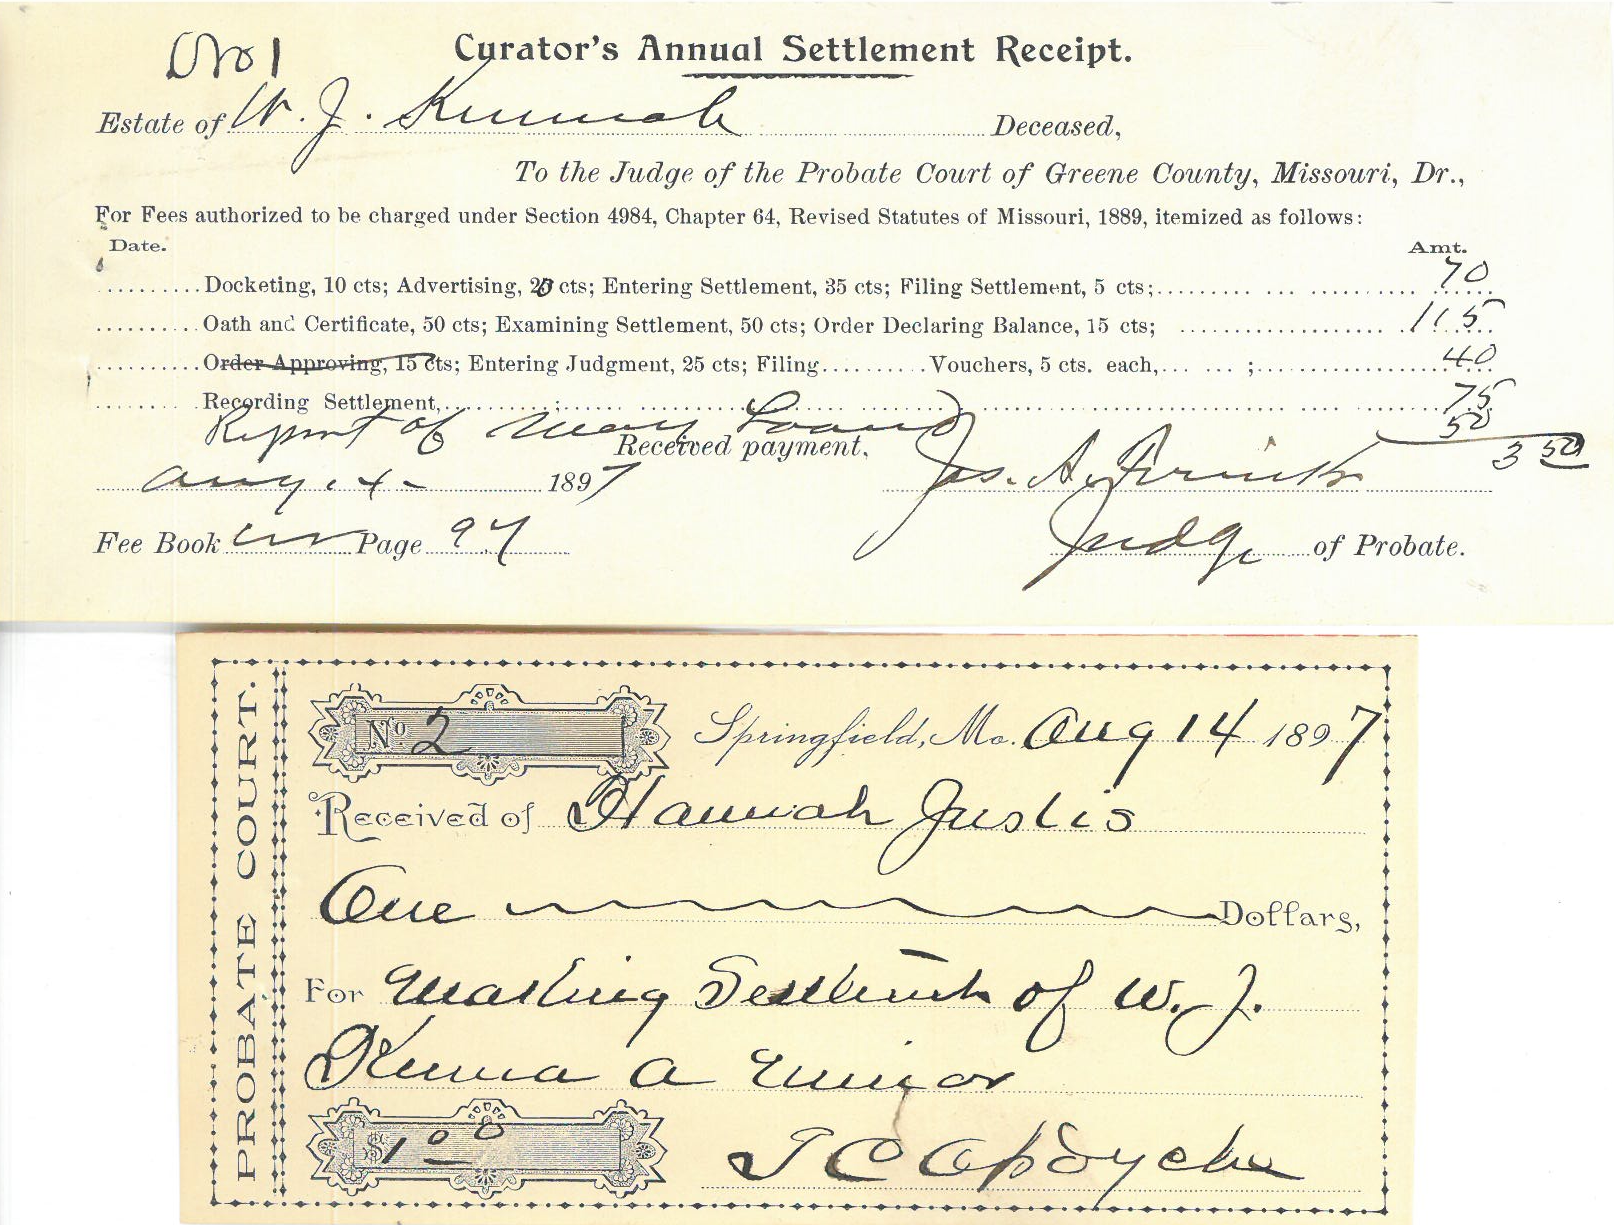 No 1
Curator's Annual Settlement Receipt.
Estate of W. J. Deceased,
To the Judge of the Probate Court of Greene County, Missouri, Dr.,
For Fees authorized to be charged under Section 4984, Chapter 64, Revised Statutes of Missouri, 1889, itemized as follows:
Date. Amt.
Docketing, 10 cts; Advertising, 20 cts; Entering Settlement, 35 cts; Filing Settlement, 5 cts; 70
Oath and Certificate, 50 cts; Examining Settlement, 50 cts; Order Declaring Balance, 15 cts; 115
Order Approving, 15 cts; Entering Judgment, 25 cts; Filing Vouchers, 5 cts. each, ; 40
Recording Settlement, 75
Report of Loans 50
Received payment, 3 50
Aug. 4 1897 Jas. A.
Fee Book Page 97 Judge of Probate.
PROBATE COURT.
No. 2 Springfield, Mo. Aug 14 1897
Received of Hannah Justis
One Dollars,
For Making of W. J.
Kenna a minor
$1 00 T C Opdycke